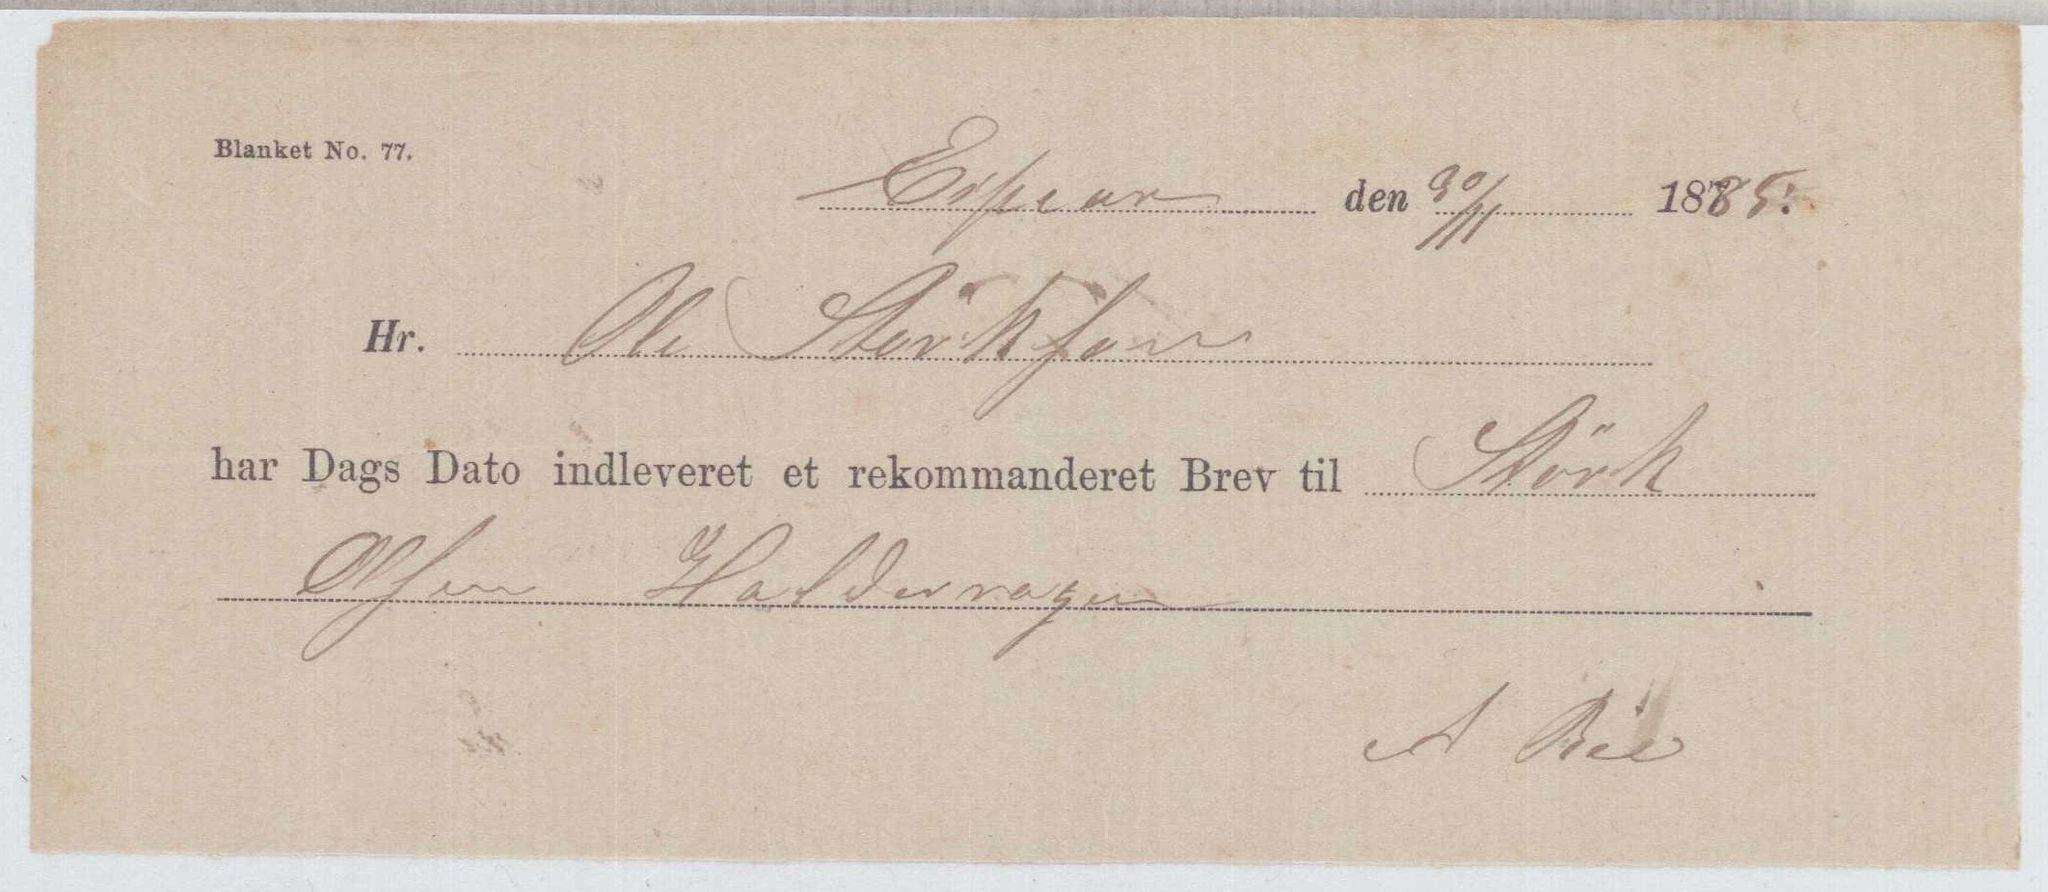 Blanket No. 77.
Espevær den 30/11 1885.
Hr. Ole Störksen
har Dags Dato indleveret et rekommanderet Brev til Störk
Olsen Haldervagen
A Bee